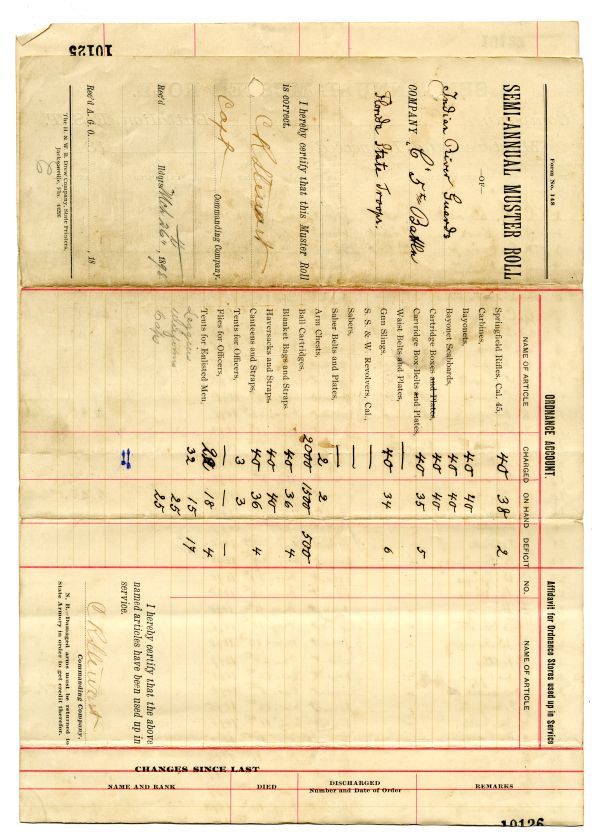 10125
Form No. 148
SEMI-ANNUAL MUSTER ROLL
—OF—
Indian River Guards
COMPANY "C" 5th Battln
Florida State Troops.
I hereby certify that this Muster Roll
is correct.
C R Stewart
Capt Commanding Company.
Hdqrs Mch 26th, 1896
Rec'd
Rec'd A. G. O. , 18
The H. & W. B. Drew Company, State Printers,
Jacksonville, Fla.
ORDNANCE ACCOUNT.
NAME OF ARTICLE CHARGED ON HAND DEFICIT
Springfield Rifles, Cal. 45, 40 38 2
Carbines,
Bayonets, 40 40
Bayonet Scabbards, 40 40
Cartridge Boxes and Plates, 40 40
Cartridge Box Belts and Plates, 40 35 5
Waist Belts and Plates, —
Gun Slings, 40 34 6
S. S. & W. Revolvers, Cal., —
Sabers, —
Saber Belts and Plates, —
Arm Chests, 2 2
Ball Cartridges, 2000 1500 500
Blanket Bags and Straps 40 36 4
Haversacks and Straps, 40 40
Canteens and Straps, 40 36 4
Tents for Officers, 3 3
Flies for Officers, — — —
Tents for Enlisted Men, 22 18 4
Leggins 32 15 17
25
Caps 25
Affidavit for Ordnance Stores used up in Service
NO. NAME OF ARTICLE
I hereby certify that the above
named articles have been used up in
service.
C R Stewart
Commanding Company.
N. B.—Damaged arms must be returned to
State Armory in order to get credit therefor.
CHANGES SINCE LAST
NAME AND RANK DIED DISCHARGED
Number and Date of Order REMARKS
10126